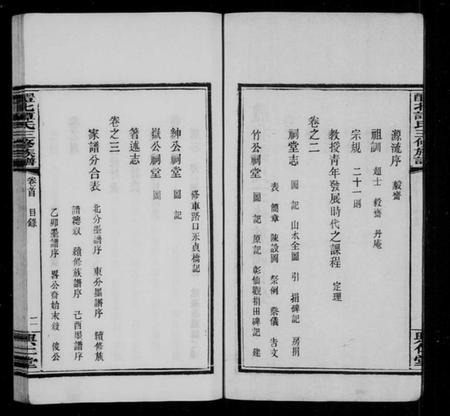 醴北譚氏三修族譜
源流序 毅齋
祖訓 超士 毅齋 丹庵
宗規 二十一則
教授青年發展時代之課程 定理
卷之二
祠堂志 圖 記 山水全圖 引 捐碑記 房捐
表 簡章 陳設圖 祭例 祭儀 告文
竹公祠堂 圖 記 原記 彰仙觀捐田碑記 建
興仁堂
修車路口禾貞橋記
紳公祠堂 圖 記
嶽公祠堂 圖
著述志
卷之三
家譜分合表 北分墨譜序 東分墨譜序 續修族
譜總敘 續修族譜序 己酉墨譜序
乙卯墨譜序 畧公齋始末敘 俊公
醴北譚氏三修族譜 卷首 目錄 二 興仁堂